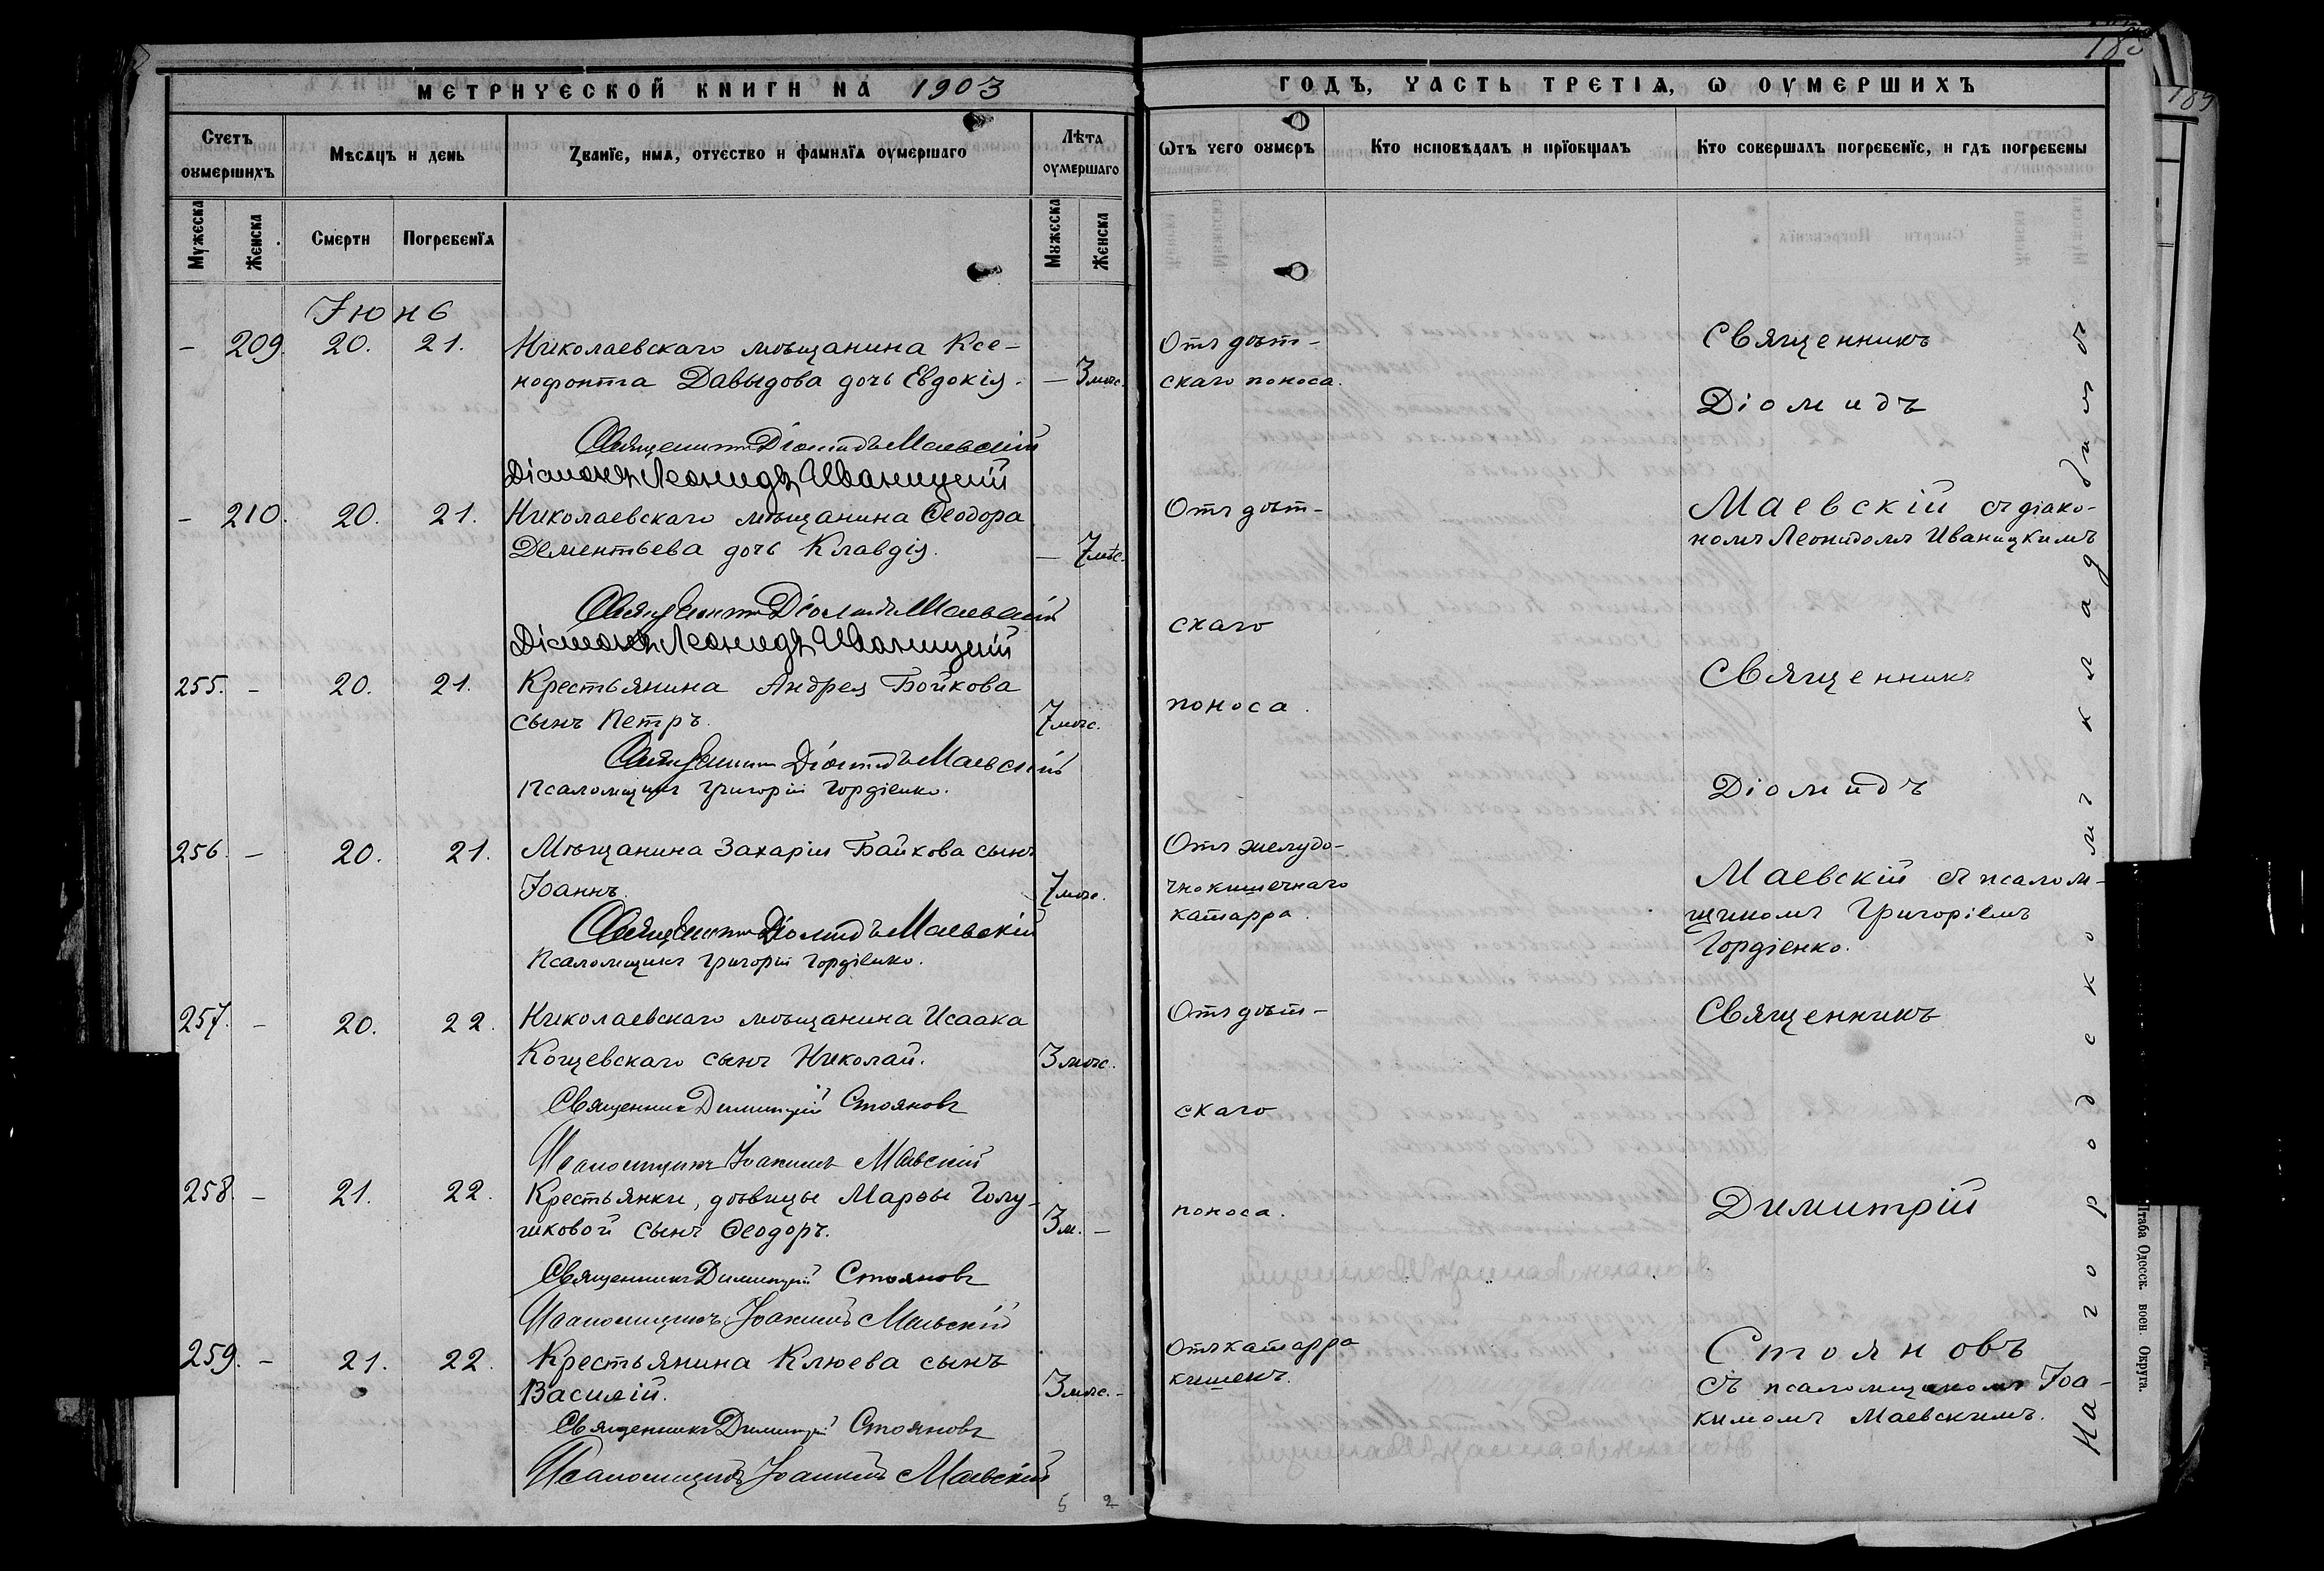 185
МЕТРИЧЕСКОЙ КНИГИ НА 1903
ГОДЪ, ЧАСТЬ ТРЕТІЯ, Ѡ ОУМЕРШИХЪ
189
Счетъ
оумершихъ
Мѣсяцъ и день
Званіе, имя, отчество и фамилія оумершаго
Лѣта
оумершаго
Мужеска
Женска
Смерти
Погребенія
Мужеска
Женска
Ѿтъ чего оумеръ
Кто исповѣдалъ и пріобщалъ
Кто совершалъ погребеніе, и гдѣ погребены
Іюнь
- 209. 20. 21. Николаевскаго мѣщанина Ксе-
нофонта Давыдова дочь Евдокія. — 3 мѣс.
Священникъ Діомидъ Маевскій
Діаконъ Леонидъ Иваницкій
- 210. 20. 21. Николаевскаго мѣщанина Ѳеодора
Дементьева дочь Клавдія. — 7 мѣс.
Священникъ Діомидъ Маевскій
Діаконъ Леонидъ Иваницкій
255. - 20. 21. Крестьянина Андрея Бойкова
сынъ Петръ. 7 мѣс.
Священникъ Діомидъ Маевскій
Псаломщикъ Григорій Гордіенко.
256. - 20. 21. Мѣщанина Захарія Байкова сынъ
Іоаннъ. 7 мѣс.
Священникъ Діомидъ Маевскій
Псаломщикъ Григорій Гордіенко.
257. - 20. 22. Николаевскаго мѣщанина Исаака
Кощевскаго сынъ Николай. 3 мѣс.
Священникъ Димитрій Стояновъ
Псаломщикъ Іоакимъ Маевскій
258. - 21. 22. Крестьянки, дѣвицы Марѳы Голу-
шковой сынъ Ѳеодоръ. 3 м. —
Священникъ Димитрій Стояновъ
Псаломщикъ Іоакимъ Маевскій
259. - 21. 22. Крестьянина Клюева сынъ
Василій. 3 мѣс. -
Священникъ Димитрій Стояновъ
Псаломщикъ Іоакимъ Маевскій
5 2
Отъ дѣт-
скаго поноса.
Отъ дѣт-
скаго
поноса.
Отъ желудо-
чнокишечнаго
катарра.
Отъ дѣт-
скаго
поноса.
Отъ катарра
кишекъ.
Священникъ
Діомидъ
Маевскій съ діако-
номъ Леонидомъ Иваницкимъ
Священникъ
Діомидъ
Маевскій съ псалом-
щикомъ Григоріемъ
Гордіенко.
Священникъ
Димитрій
Стояновъ
съ псаломщикомъ Іоа-
кимомъ Маевскимъ.
На городскомъ кладбищѣ
Штаба Одесск. воен. Округа.